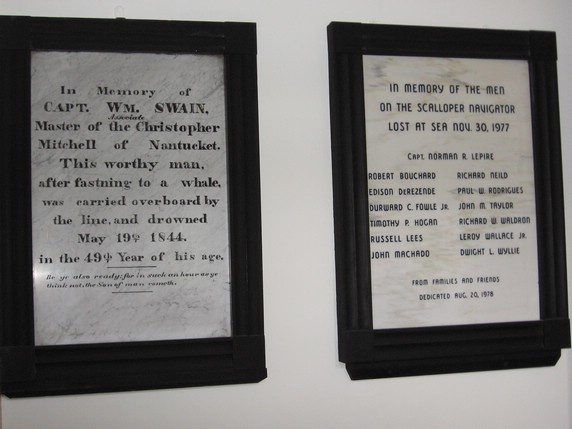 In Memory of
CAPT. WM. SWAIN,
Associate
Master of the Christopher
Mitchell of Nantucket.
This worthy man,
after fastning to a whale,
was carried overboard by
the line, and drowned
May 19th 1844.
in the 49th Year of his age.
Be ye also ready: for in such an hour as ye
think not, the Son of man cometh.
IN MEMORY OF THE MEN
ON THE SCALLOPER NAVIGATOR
LOST AT SEA NOV. 30, 1977
CAPT. NORMAN R. LEPIRE
ROBERT BOUCHARD RICHARD NEILD
EDISON DEREZENDE PAUL W. RODRIGUES
DURWARD C. FOWLE JR. JOHN M. TAYLOR
TIMOTHY P. HOGAN RICHARD W. WALDRON
RUSSELL LEES LEROY WALLACE JR.
JOHN MACHADO DWIGHT L. WYLLIE
FROM FAMILIES AND FRIENDS
DEDICATED AUG. 20, 1978